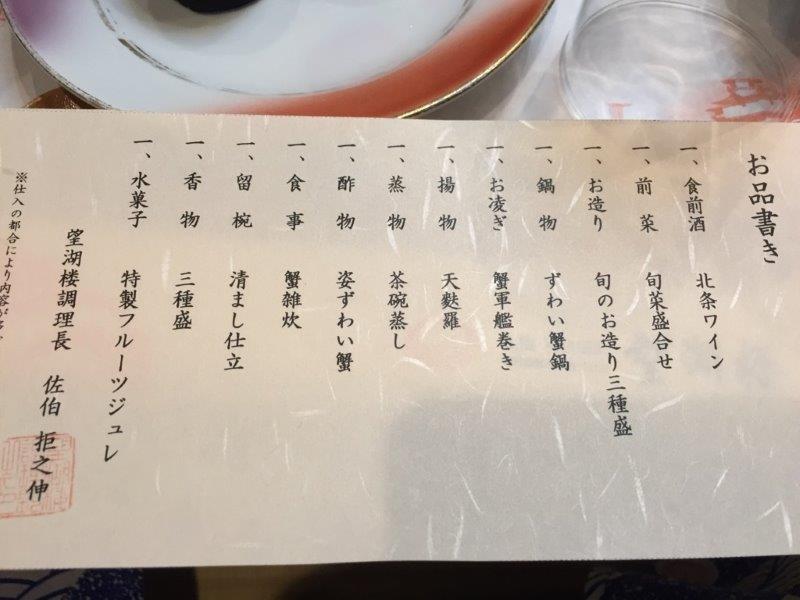 お品書き
一、食前酒 北条ワイン
一、前菜 旬菜盛合せ
一、お造り 旬のお造り三種盛
一、鍋物 ずわい蟹鍋
一、お凌ぎ 蟹軍艦巻き
一、揚物 天麩羅
一、蒸物 茶碗蒸し
一、酢物 姿ずわい蟹
一、食事 蟹雑炊
一、留椀 清まし仕立
一、香物 三種盛
一、水菓子 特製フルーツジュレ
望湖楼調理長 佐伯 拒之伸
※仕入の都合により内容が